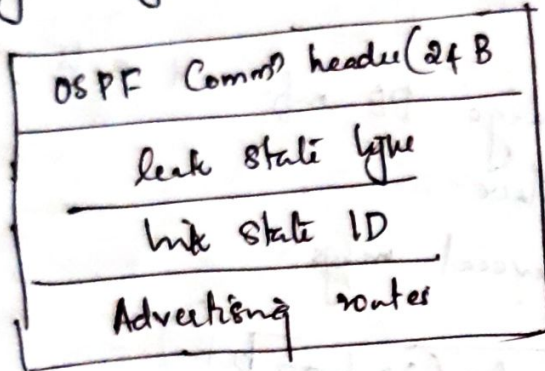 OSPF Common header (24 B
Link state type
Link state ID
Advertising router